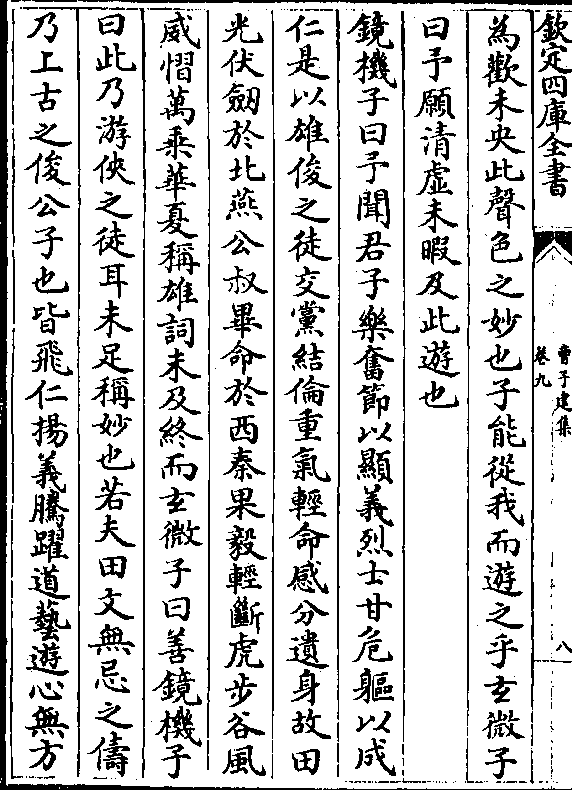 欽定四庫全書
曹子建集
卷九
八
為歡未央此聲色之妙也子能從我而遊之乎玄微子
曰予願清虛未暇及此遊也
鏡機子曰予聞君子樂奮節以顯義烈士甘危軀以成
仁是以雄俊之徒交黨結倫重氣輕命感分遺身故田
光伏劒於北燕公叔畢命於西秦果毅輕斷虎步谷風
威慴萬乘華夏稱雄詞未及終而玄微子曰善鏡機子
曰此乃游俠之徒耳未足稱妙也若夫田文無忌之儔
乃上古之俊公子也皆飛仁揚義騰躍道藝遊心無方